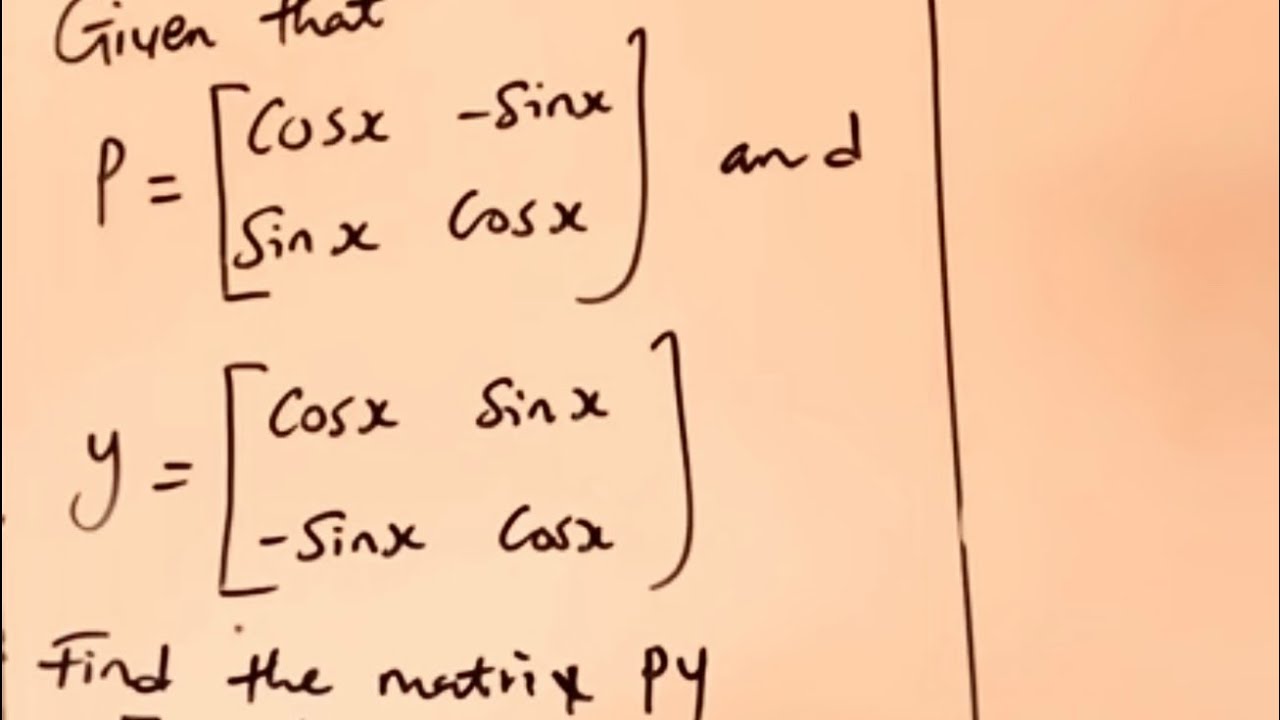 Given that
P = [Cosx -Sinx
Sinx Cosx] and
y = [Cosx Sinx
-Sinx Cosx]
Find the matrix Py